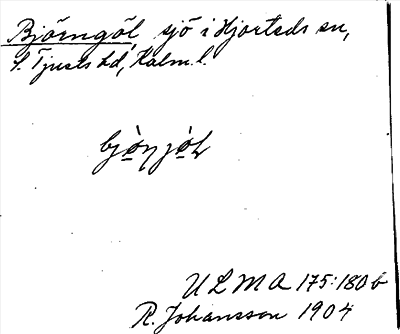 Björngöl, sjö i Hjorteds sn,
S. Tjusts hd, Kalm. l.
ULMA 175:180 b
R. Johansson 1904